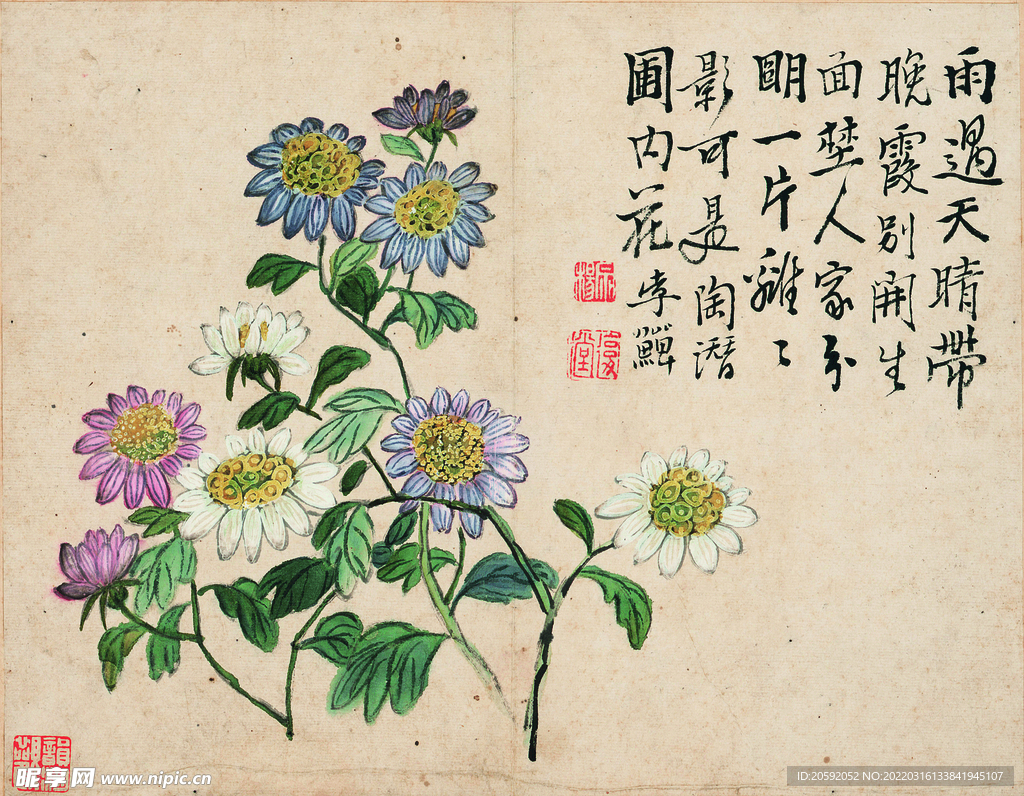 雨過天晴帶
晚霞別開生
面埜人家分
朙一片離〻
影可是陶潛
圃内花李鱓
昵享网 www.nipic.cn
ID:20592052 NO:20220316133841945107